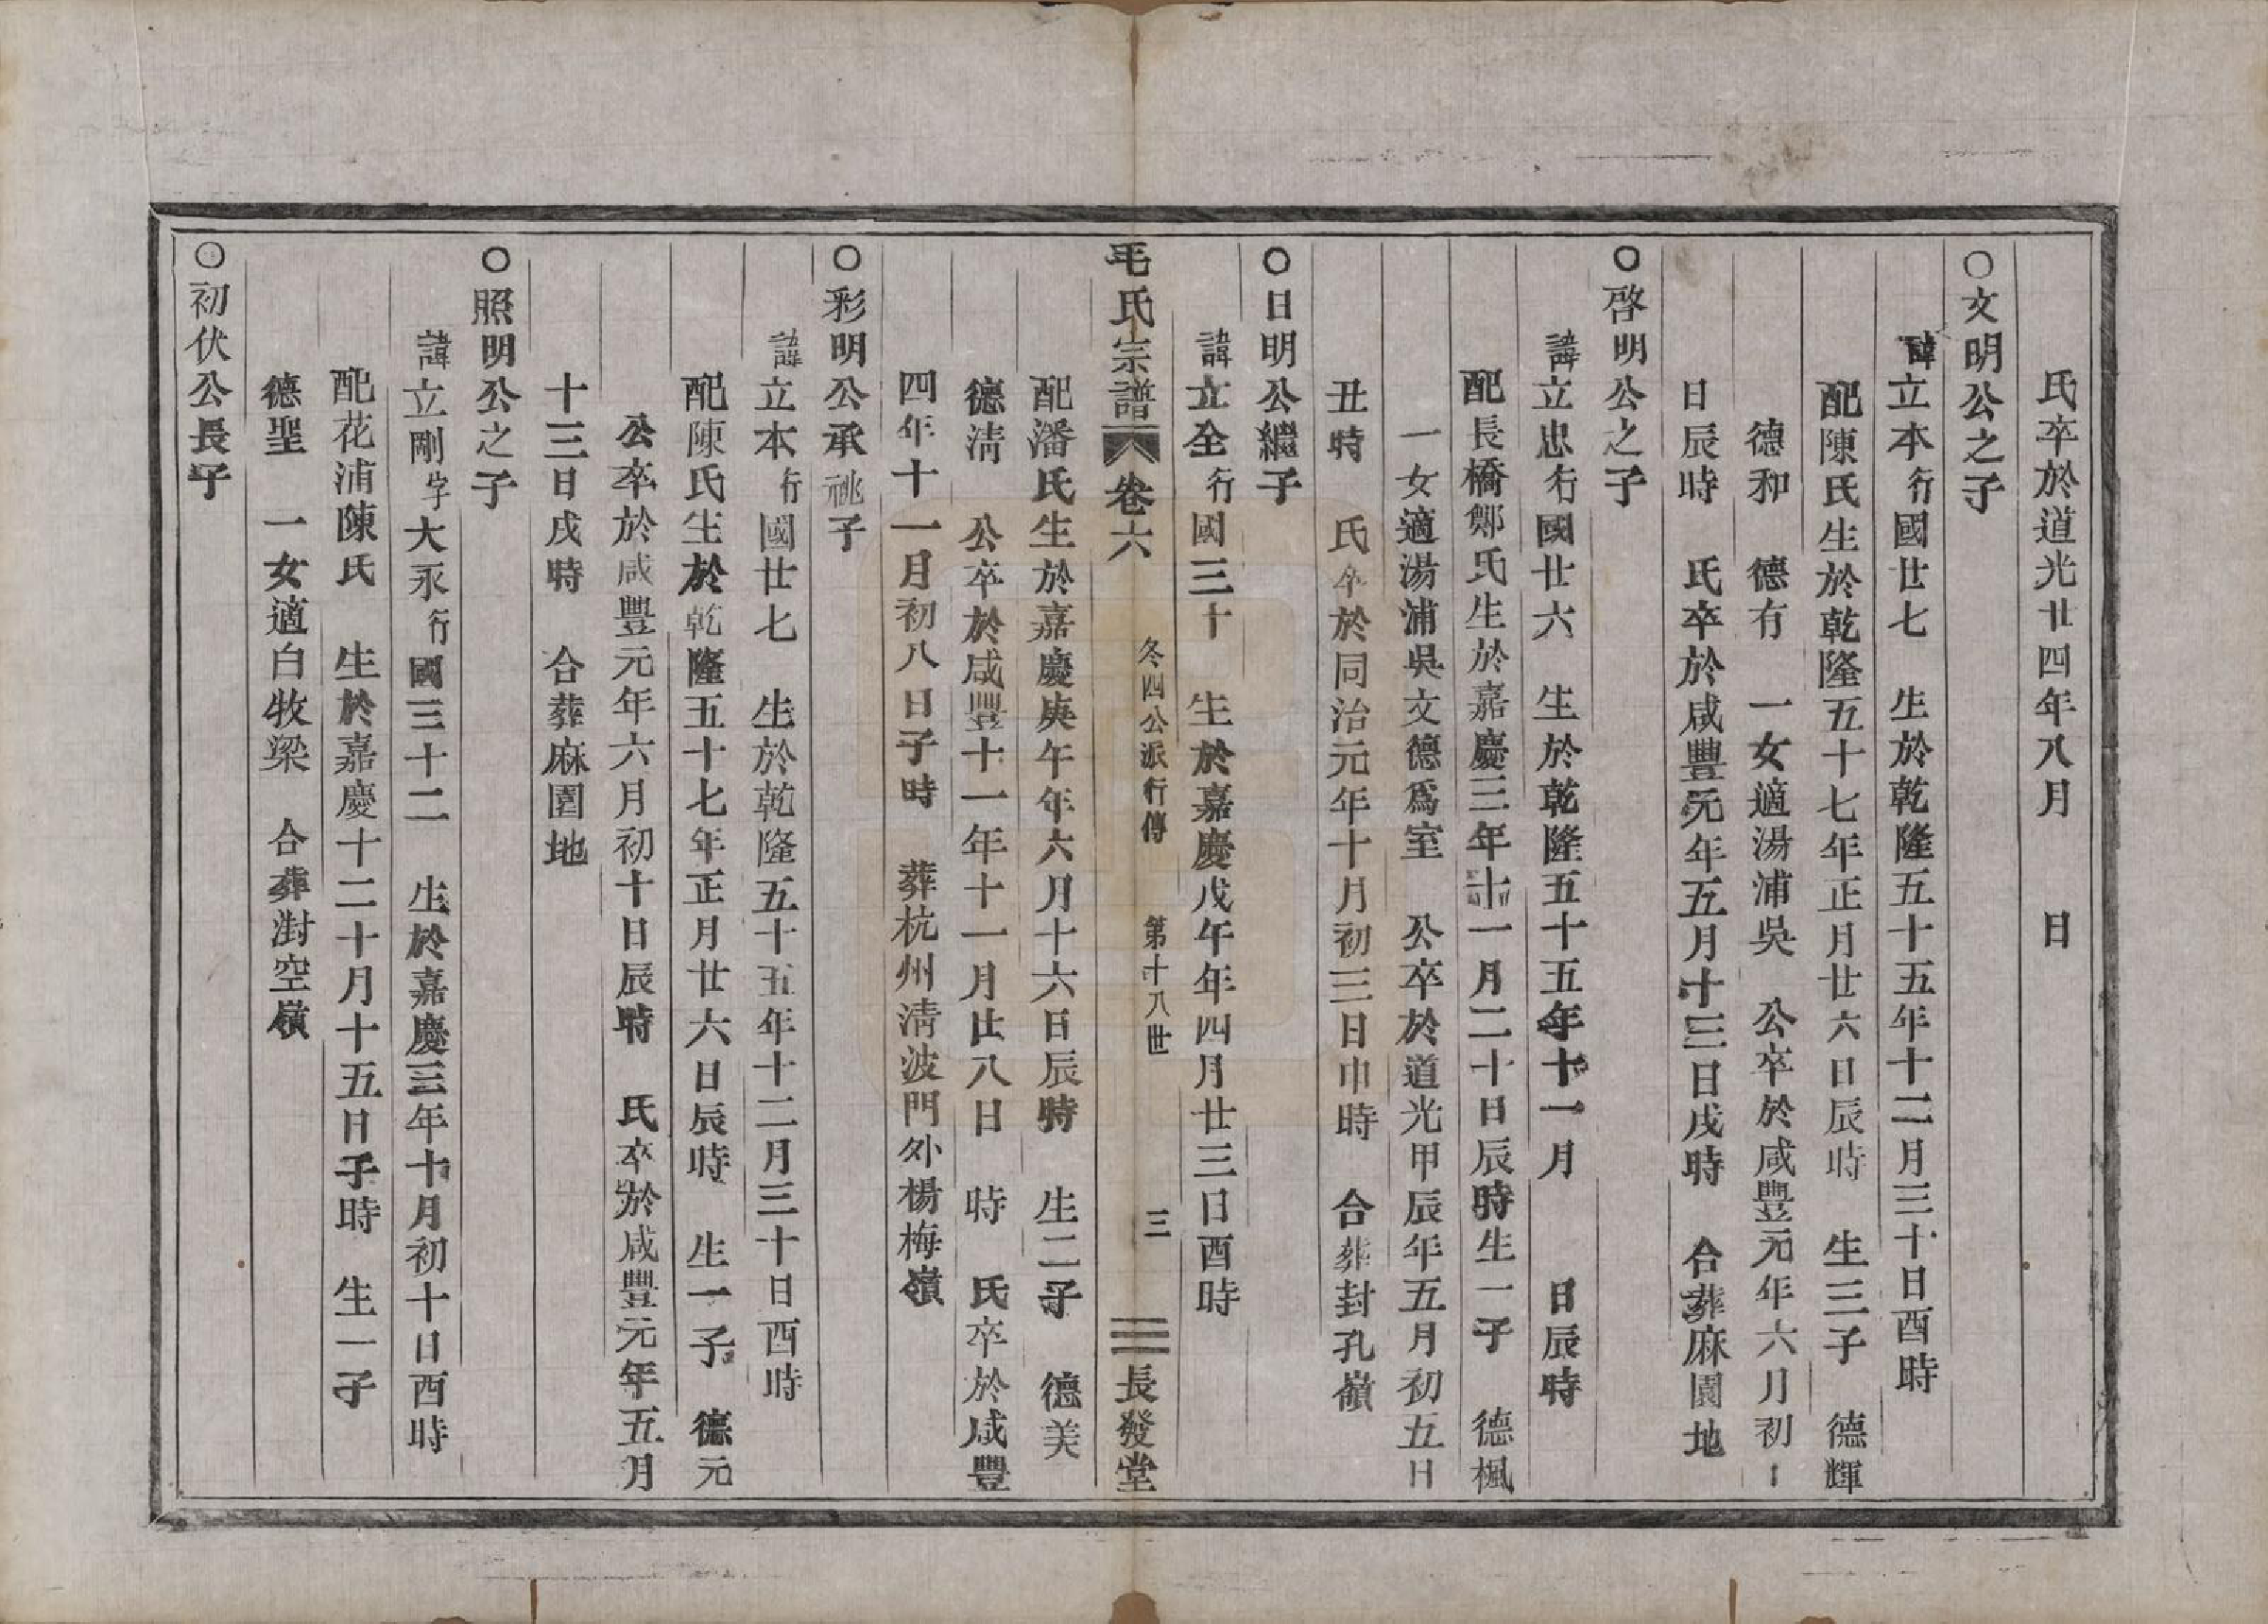 氏卒於道光廿四年八月　日
○文明公之子
諱立本行國廿七　生於乾隆五十五年十二月三十日酉時
配陳氏生於乾隆五十七年正月廿六日辰時　生三子　德輝
德和　德有　一女適湯浦吳　公卒於咸豐元年六月初
日辰時　氏卒於咸豐元年五月十三日戌時　合葬麻園地
○啓明公之子
諱立忠行國廿六　生於乾隆五十五年十一月　日辰時
配長橋鄭氏生於嘉慶三年十一月二十日辰時生一子　德楓
一女適湯浦吳文德爲室　公卒於道光甲辰年五月初五日
丑時　氏卒於同治元年十月初三日巾時　合葬封孔嶺
○日明公繼子
諱立全行國三十　生於嘉慶戊午年四月廿三日酉時
毛氏宗譜　卷六　冬四公派行傳　第十八世　三　長發堂
配潘氏生於嘉慶庚午年六月十六日辰時　生二子　德美
德淸　公卒於咸豐十一年十一月廿八日　時　氏卒於咸豐
四年十一月初八日子時　葬杭州淸波門外楊梅嶺
○彩明公承祧子
諱立本行國廿七　生於乾隆五十五年十二月三十日酉時
配陳氏生於乾隆五十七年正月廿六日辰時　生一子　德元
公卒於咸豐元年六月初十日辰時　氏卒於咸豐元年五月
十三日戌時　合葬麻園地
○照明公之子
諱立剛字大永行國三十二　生於嘉慶三年十月初十日酉時
配花浦陳氏　生於嘉慶十二十月十五日子時　生一子
德聖　一女適白牧梁　合葬封空嶺
○初伏公長子